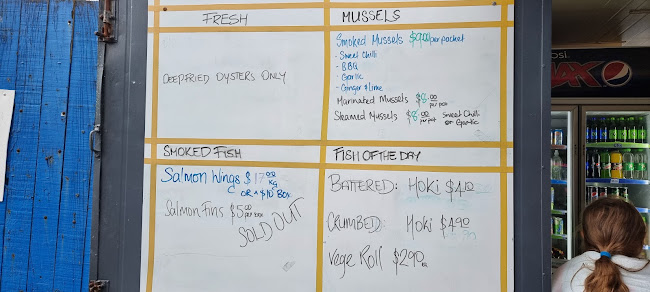 FRESH
DEEPFRIED OYSTERS ONLY
MUSSELS
Smoked Mussels $9.00 per packet
- Sweet Chilli
- BBQ
- Garlic
- Ginger & Lime
Marinated Mussels $8.00 per pot
Steamed Mussels $8.00 per pot Sweet Chilli or Garlic
SMOKED FISH
Salmon Wings $17.00 KG
OR A $10 BOX
Salmon Fins $5.00 per box
SOLD OUT
FISH OF THE DAY
BATTERED: Hoki $4.10
CRUMBED: Hoki $4.90
Vege Roll $2.90